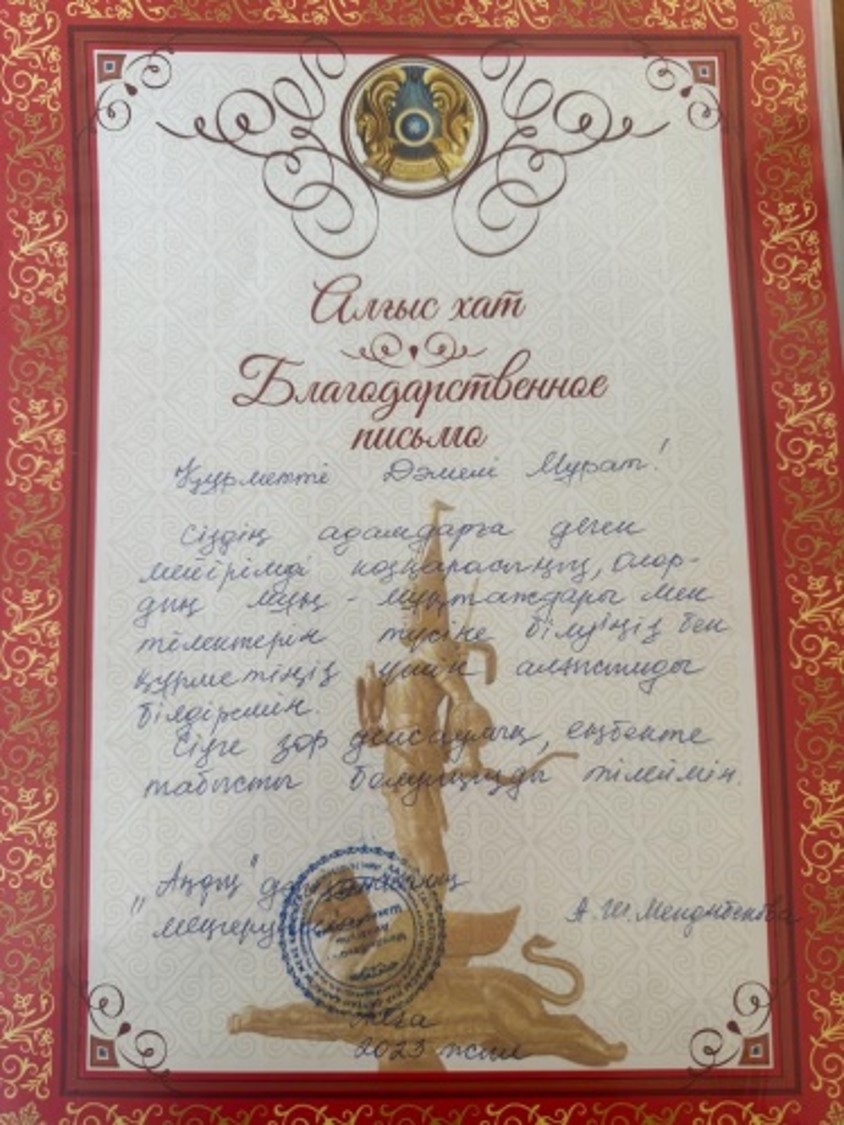 Алғыс хат
Благодарственное
письмо
Құрметті Дәмелі Мұрат!
Сіздің адамдарға деген
мейірімді көзқарасыңыз, олар-
дың мұң-мұқтаждары мен
тілектерін түсіне білуіңіз бен
құрметіңіз үшін алғысымды
білдіремін.
Сізге зор денсаулық, еңбекте
табысты болуыңызды тілеймін.
"Аққу"
А.Ш.Мендыбекова
Алға
2023 жыл